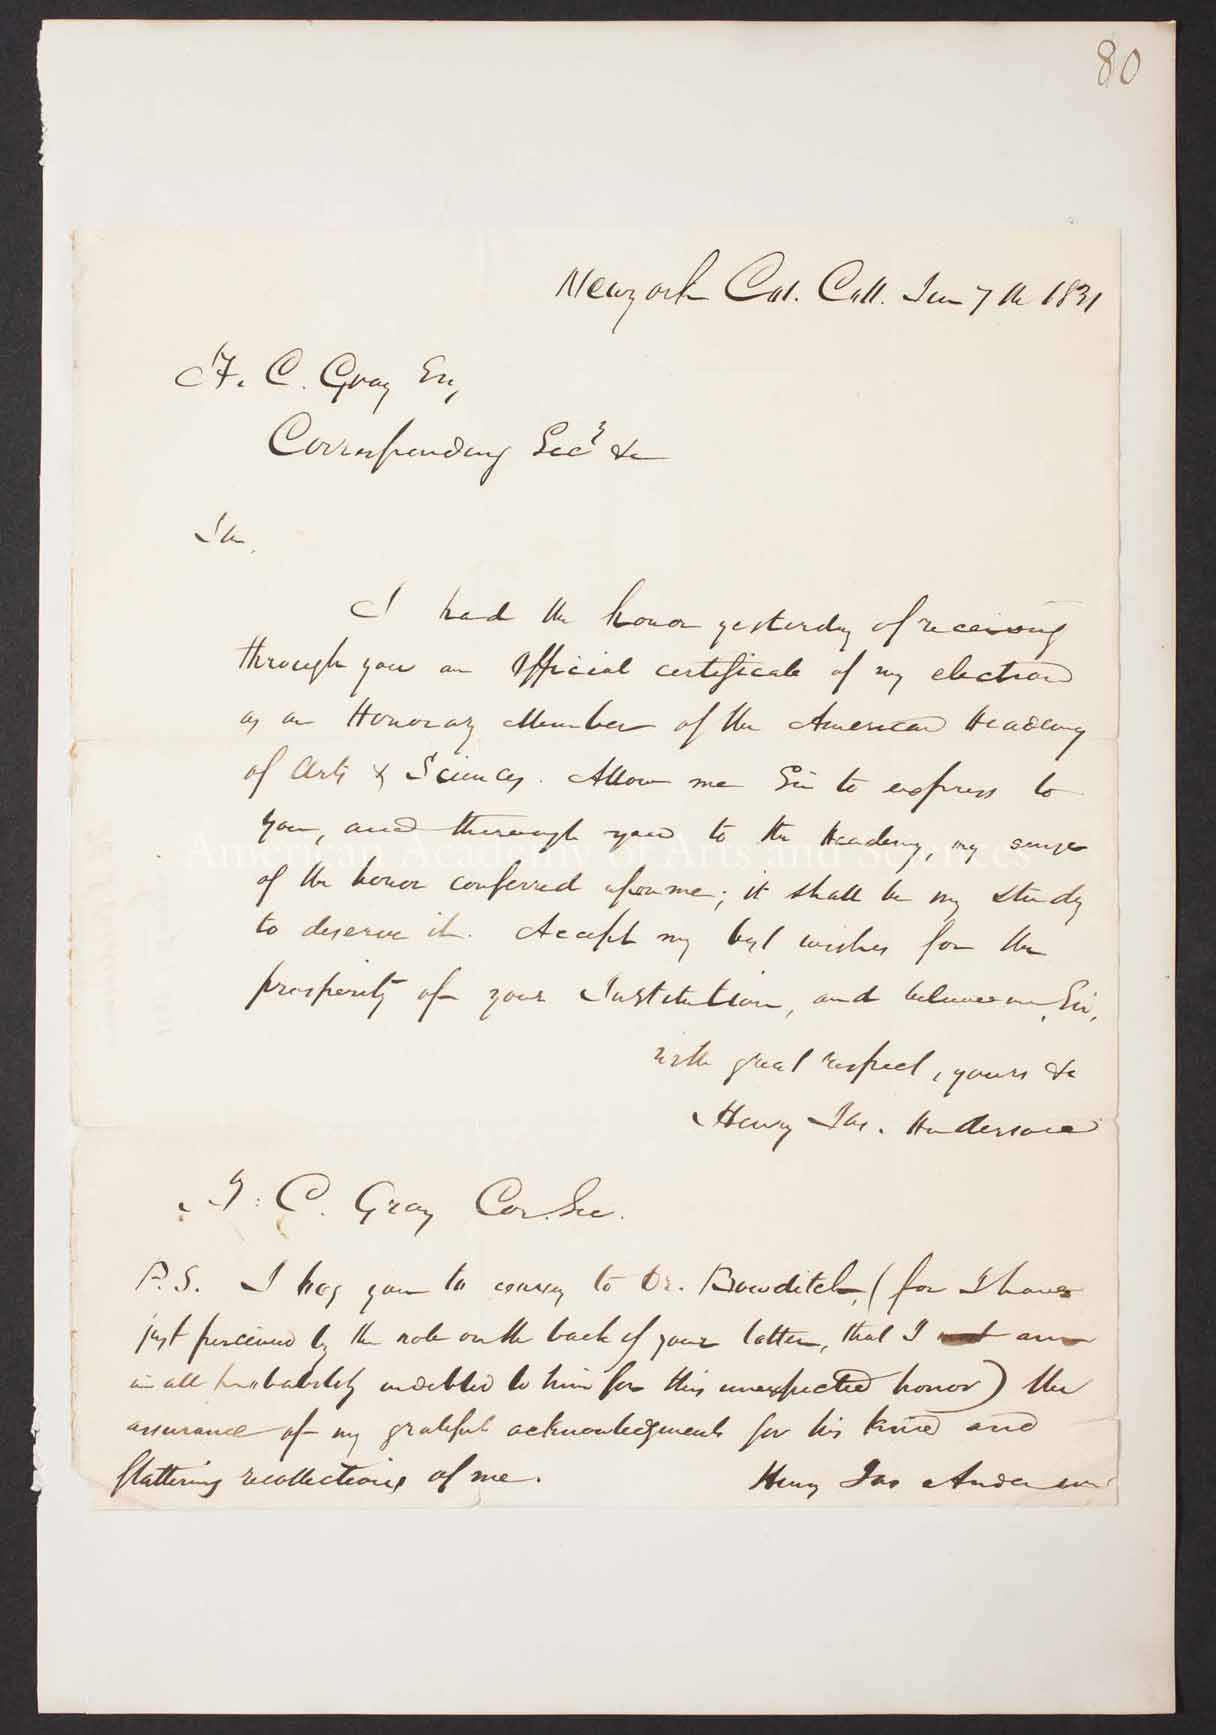 80
New york Col. Coll. Jun 7th 1831
F. C. Gray Esq,
Corresponding Secy &c
Sir,
I had the honor yesterday of receiving
through you an official certificate of my election
as an Honorary Member of the American Academy
of Arts & Sciences. Allow me Sir to express to
you, and through you to the Academy, my sense
of the honor conferred upon me; it shall be my study
to deserve it. Accept my best wishes for the
prosperity of your Institution, and believe me, Sir,
with great respect, yours &c
Henry Jas. Anderson
F. C. Gray Cor. Sec.
P.S. I beg you to convey to Dr. Bowditch, (for I have
just perceived by the note on the back of your letter, that I am
in all probability indebted to him for this unexpected honor) the
assurance of my grateful acknowledgments for his kind and
flattering recollections of me. Henry Jas Anderson
American Academy of Arts and Sciences